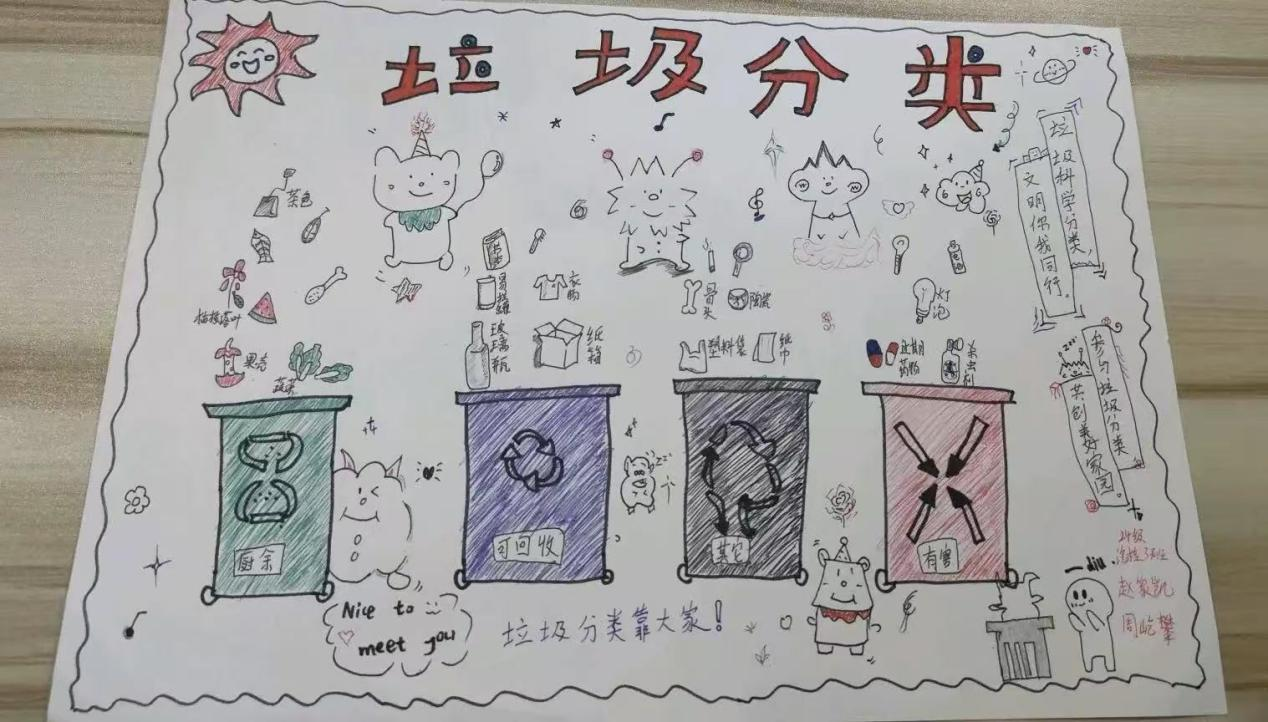 垃圾分类
垃圾科学分类,
文明你我同行。
参与垃圾分类
共创美好家园。
茶包
枯枝落叶
果壳
蔬菜
易拉罐
衣物
玻璃瓶
纸箱
骨头
陶瓷
塑料袋
纸巾
灯泡
过期药物
杀虫剂
zzz
厨余
可回收
其它
有害
Nice to
meet you
垃圾分类靠大家!
diu
赵家凯
周屹攀